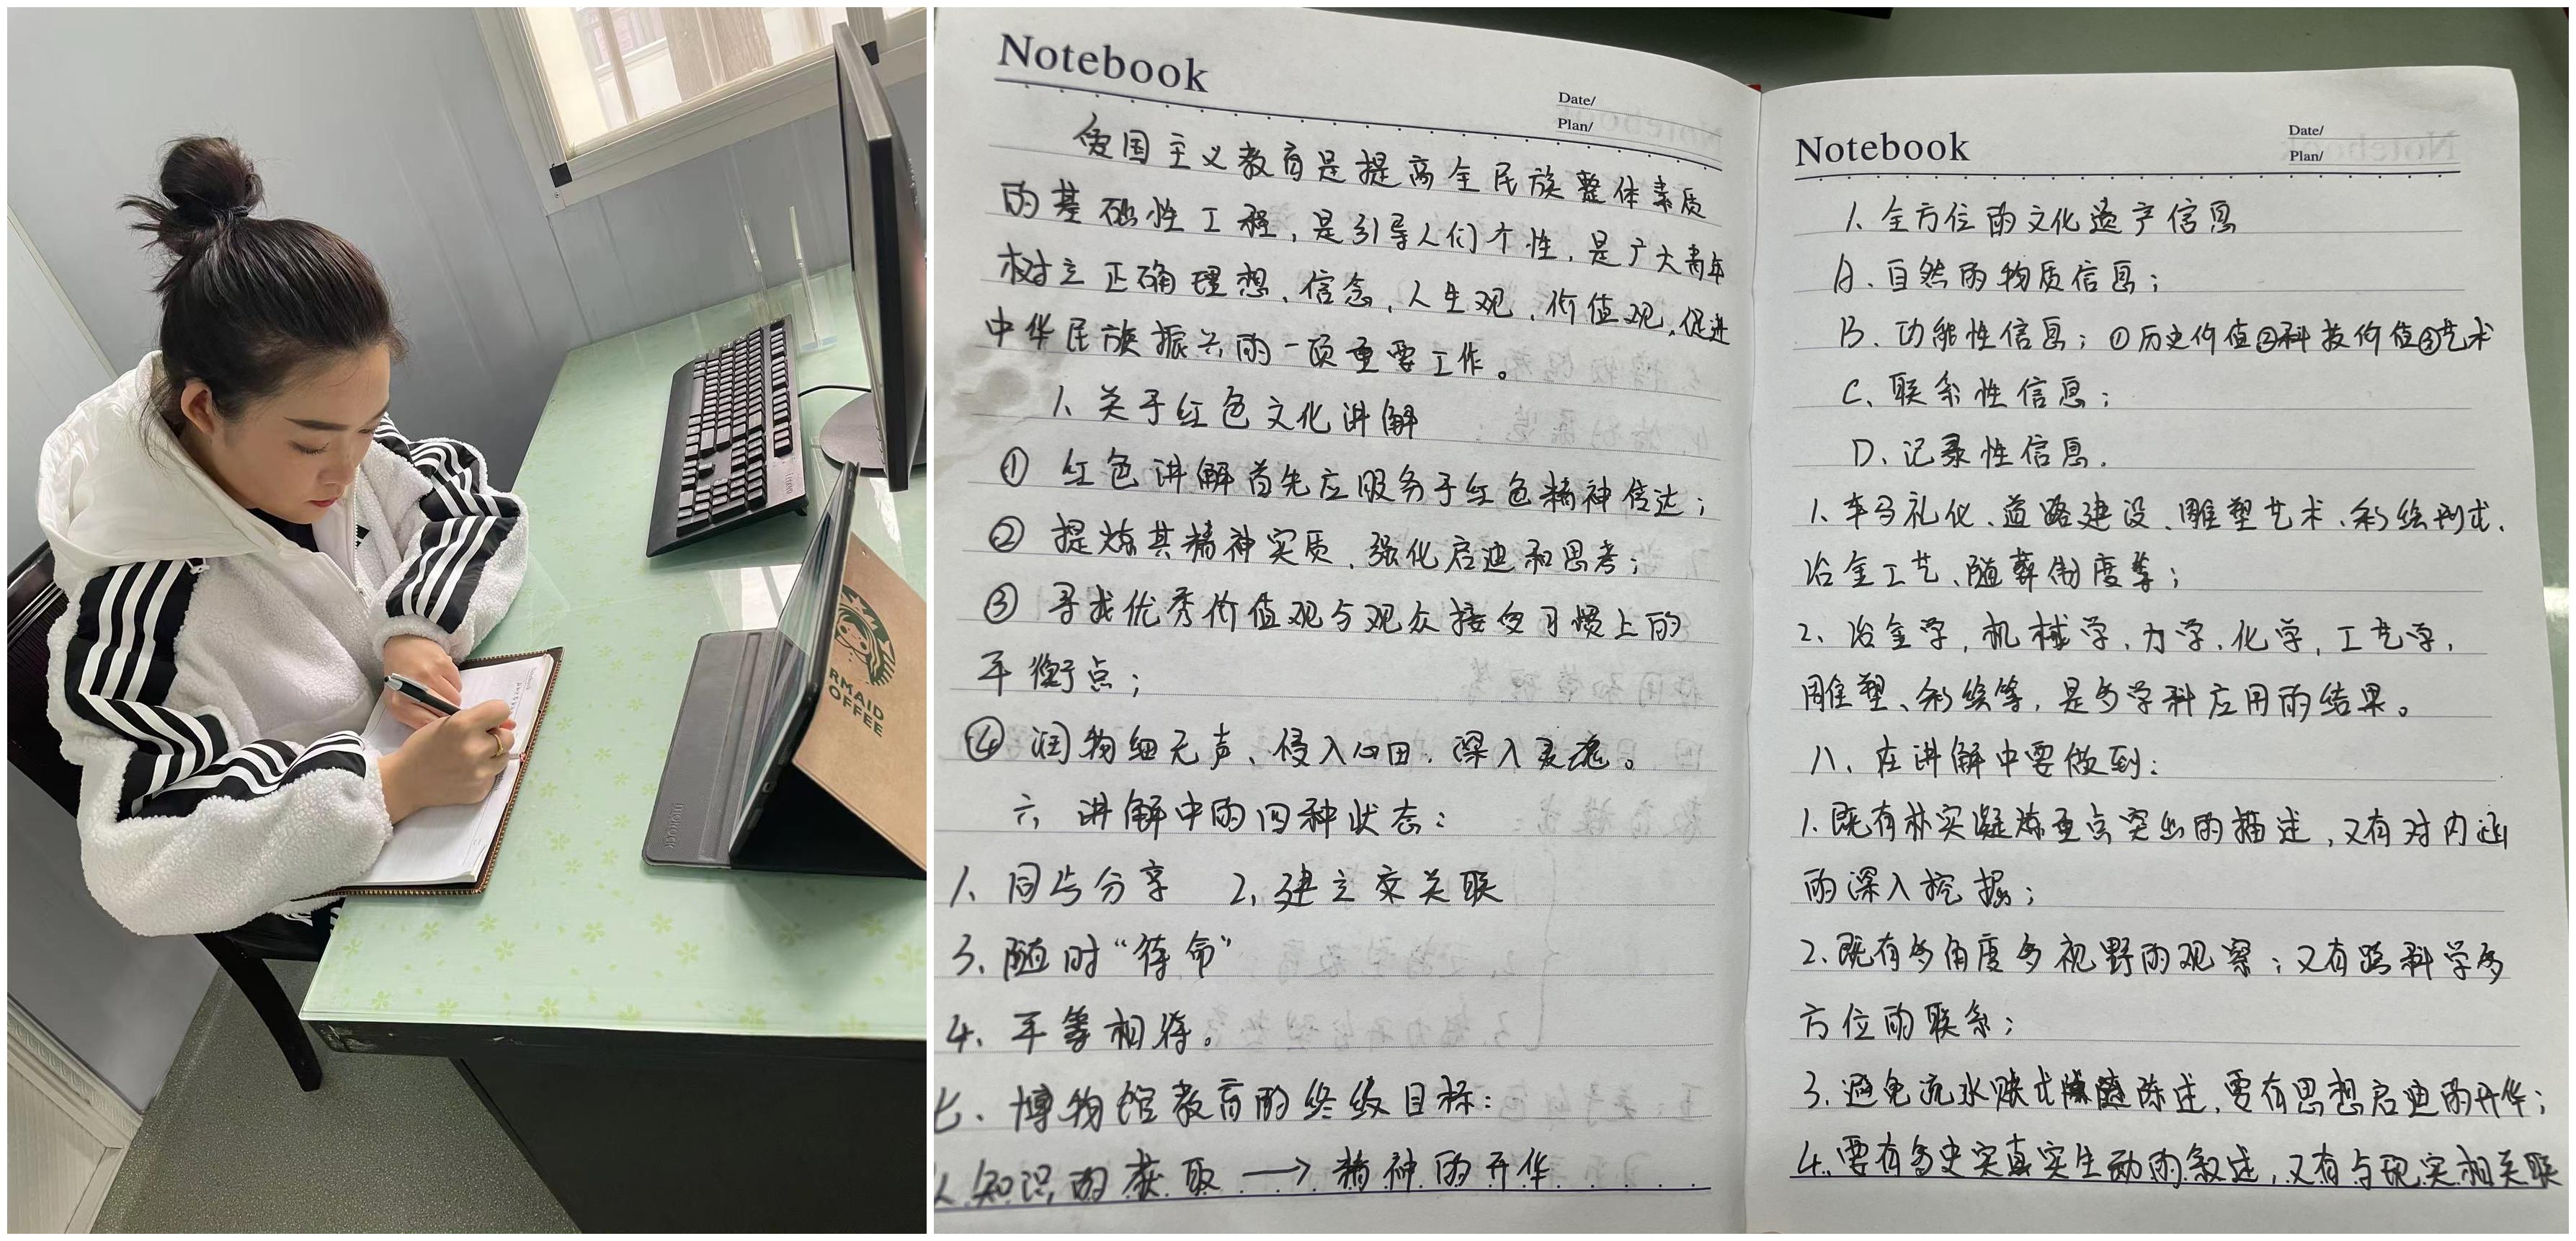 RMAID
OFFEE
HONOR
Notebook
Date/
Plan/
爱国主义教育是提高全民族整体素质
的基础性工程,是引导人们个性,是广大青年
树立正确理想、信念,人生观,价值观,促进
中华民族振兴的一项重要工作。
1、关于红色文化讲解
① 红色讲解首先应服务于红色精神传达;
② 提炼其精神实质、强化启迪和思考;
③ 寻找优秀价值观与观众接受习惯上的
平衡点;
④ 润物细无声、侵入心田、深入灵魂。
六、讲解中的四种状态:
1、同步分享 2、建立交关联
3、随时“待命”
4、平等相待。
七、博物馆教育的终级目标:
从知识的获取 → 精神的升华
Notebook
Date/
Plan/
1、全方位的文化遗产信息
A、自然的物质信息;
B、功能性信息;①历史价值②科技价值③艺术
C、联系性信息;
D、记录性信息.
1、车马礼仪、道路建设、雕塑艺术、彩绘形式、
冶金工艺、随葬制度等;
2、冶金学,机械学,力学,化学,工艺学,
雕塑、彩绘等,是多学科应用的结果。
八、在讲解中要做到:
1.既有朴实凝炼重点突出的描述,又有对内涵
的深入挖掘;
2.既有多角度多视野的观察;又有跨科学多
方位的联系;
3.避免流水账式陈述,要有思想启迪的升华;
4.要有历史实真实生动的叙述,又有与现实相关联